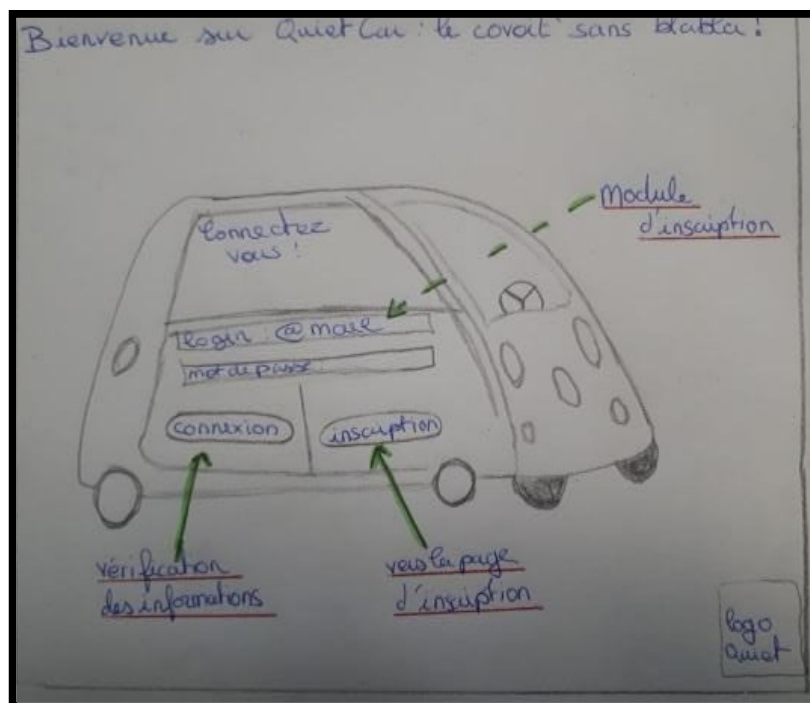 Bienvenue sur QuietCar : le covoit' sans blabla !
Module
d'inscription
Connectez
vous !
login : @mail
mot de passe :
connexion
inscription
vérification
des informations
vers la page
d'inscription
logo
Quiet